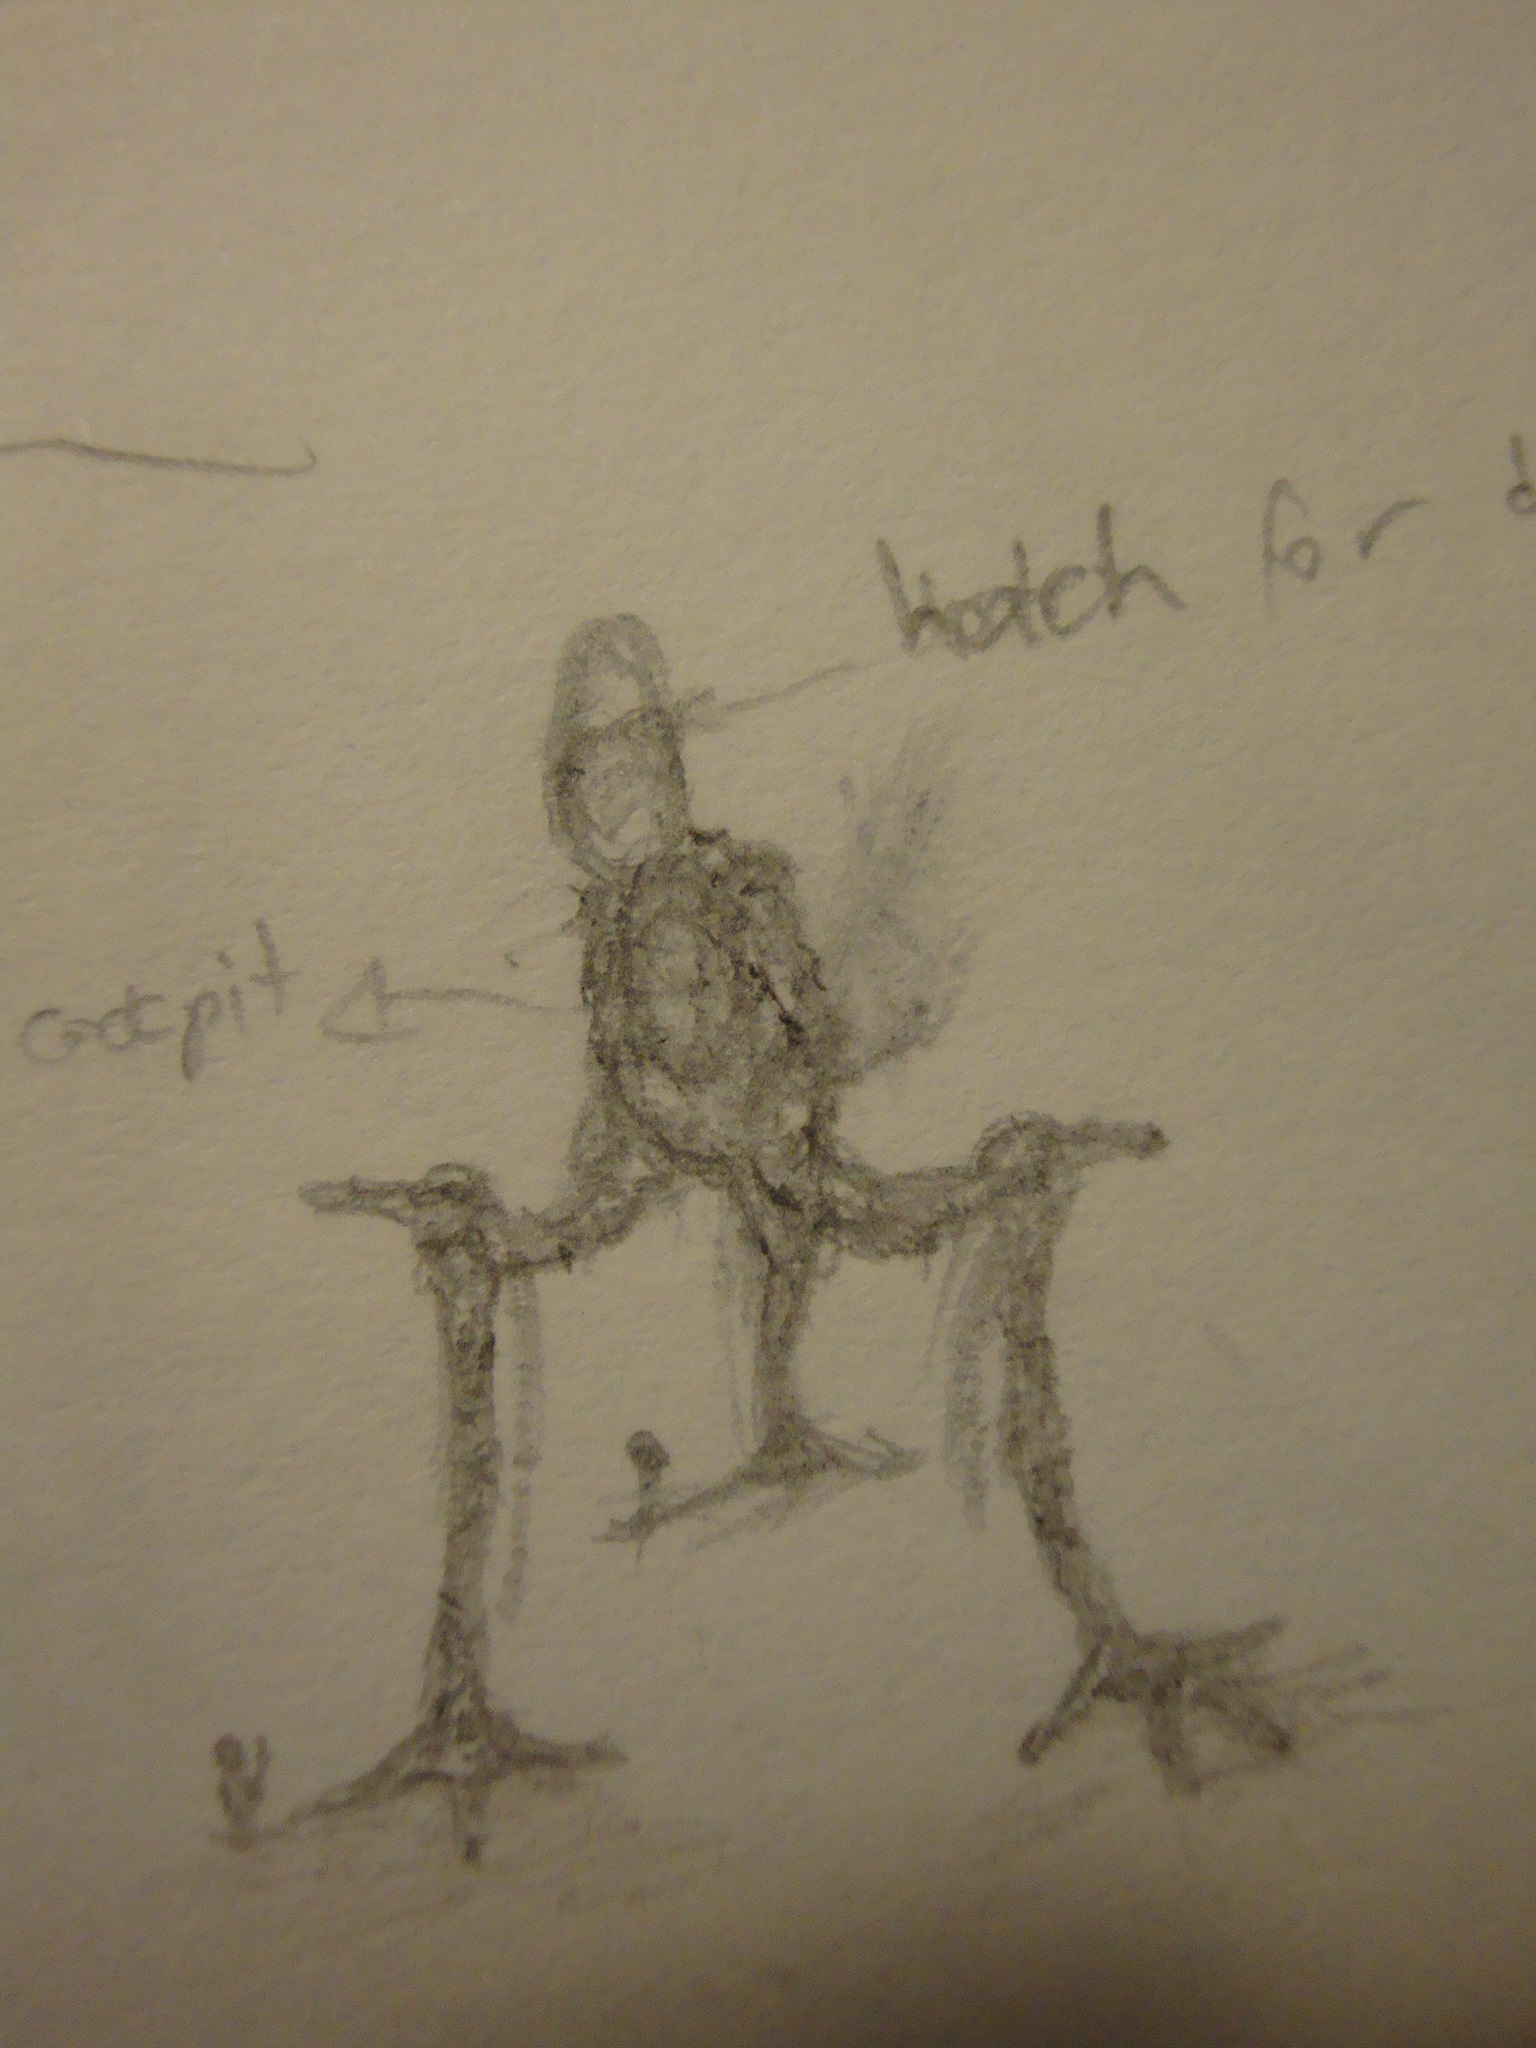 hatch for
cockpit